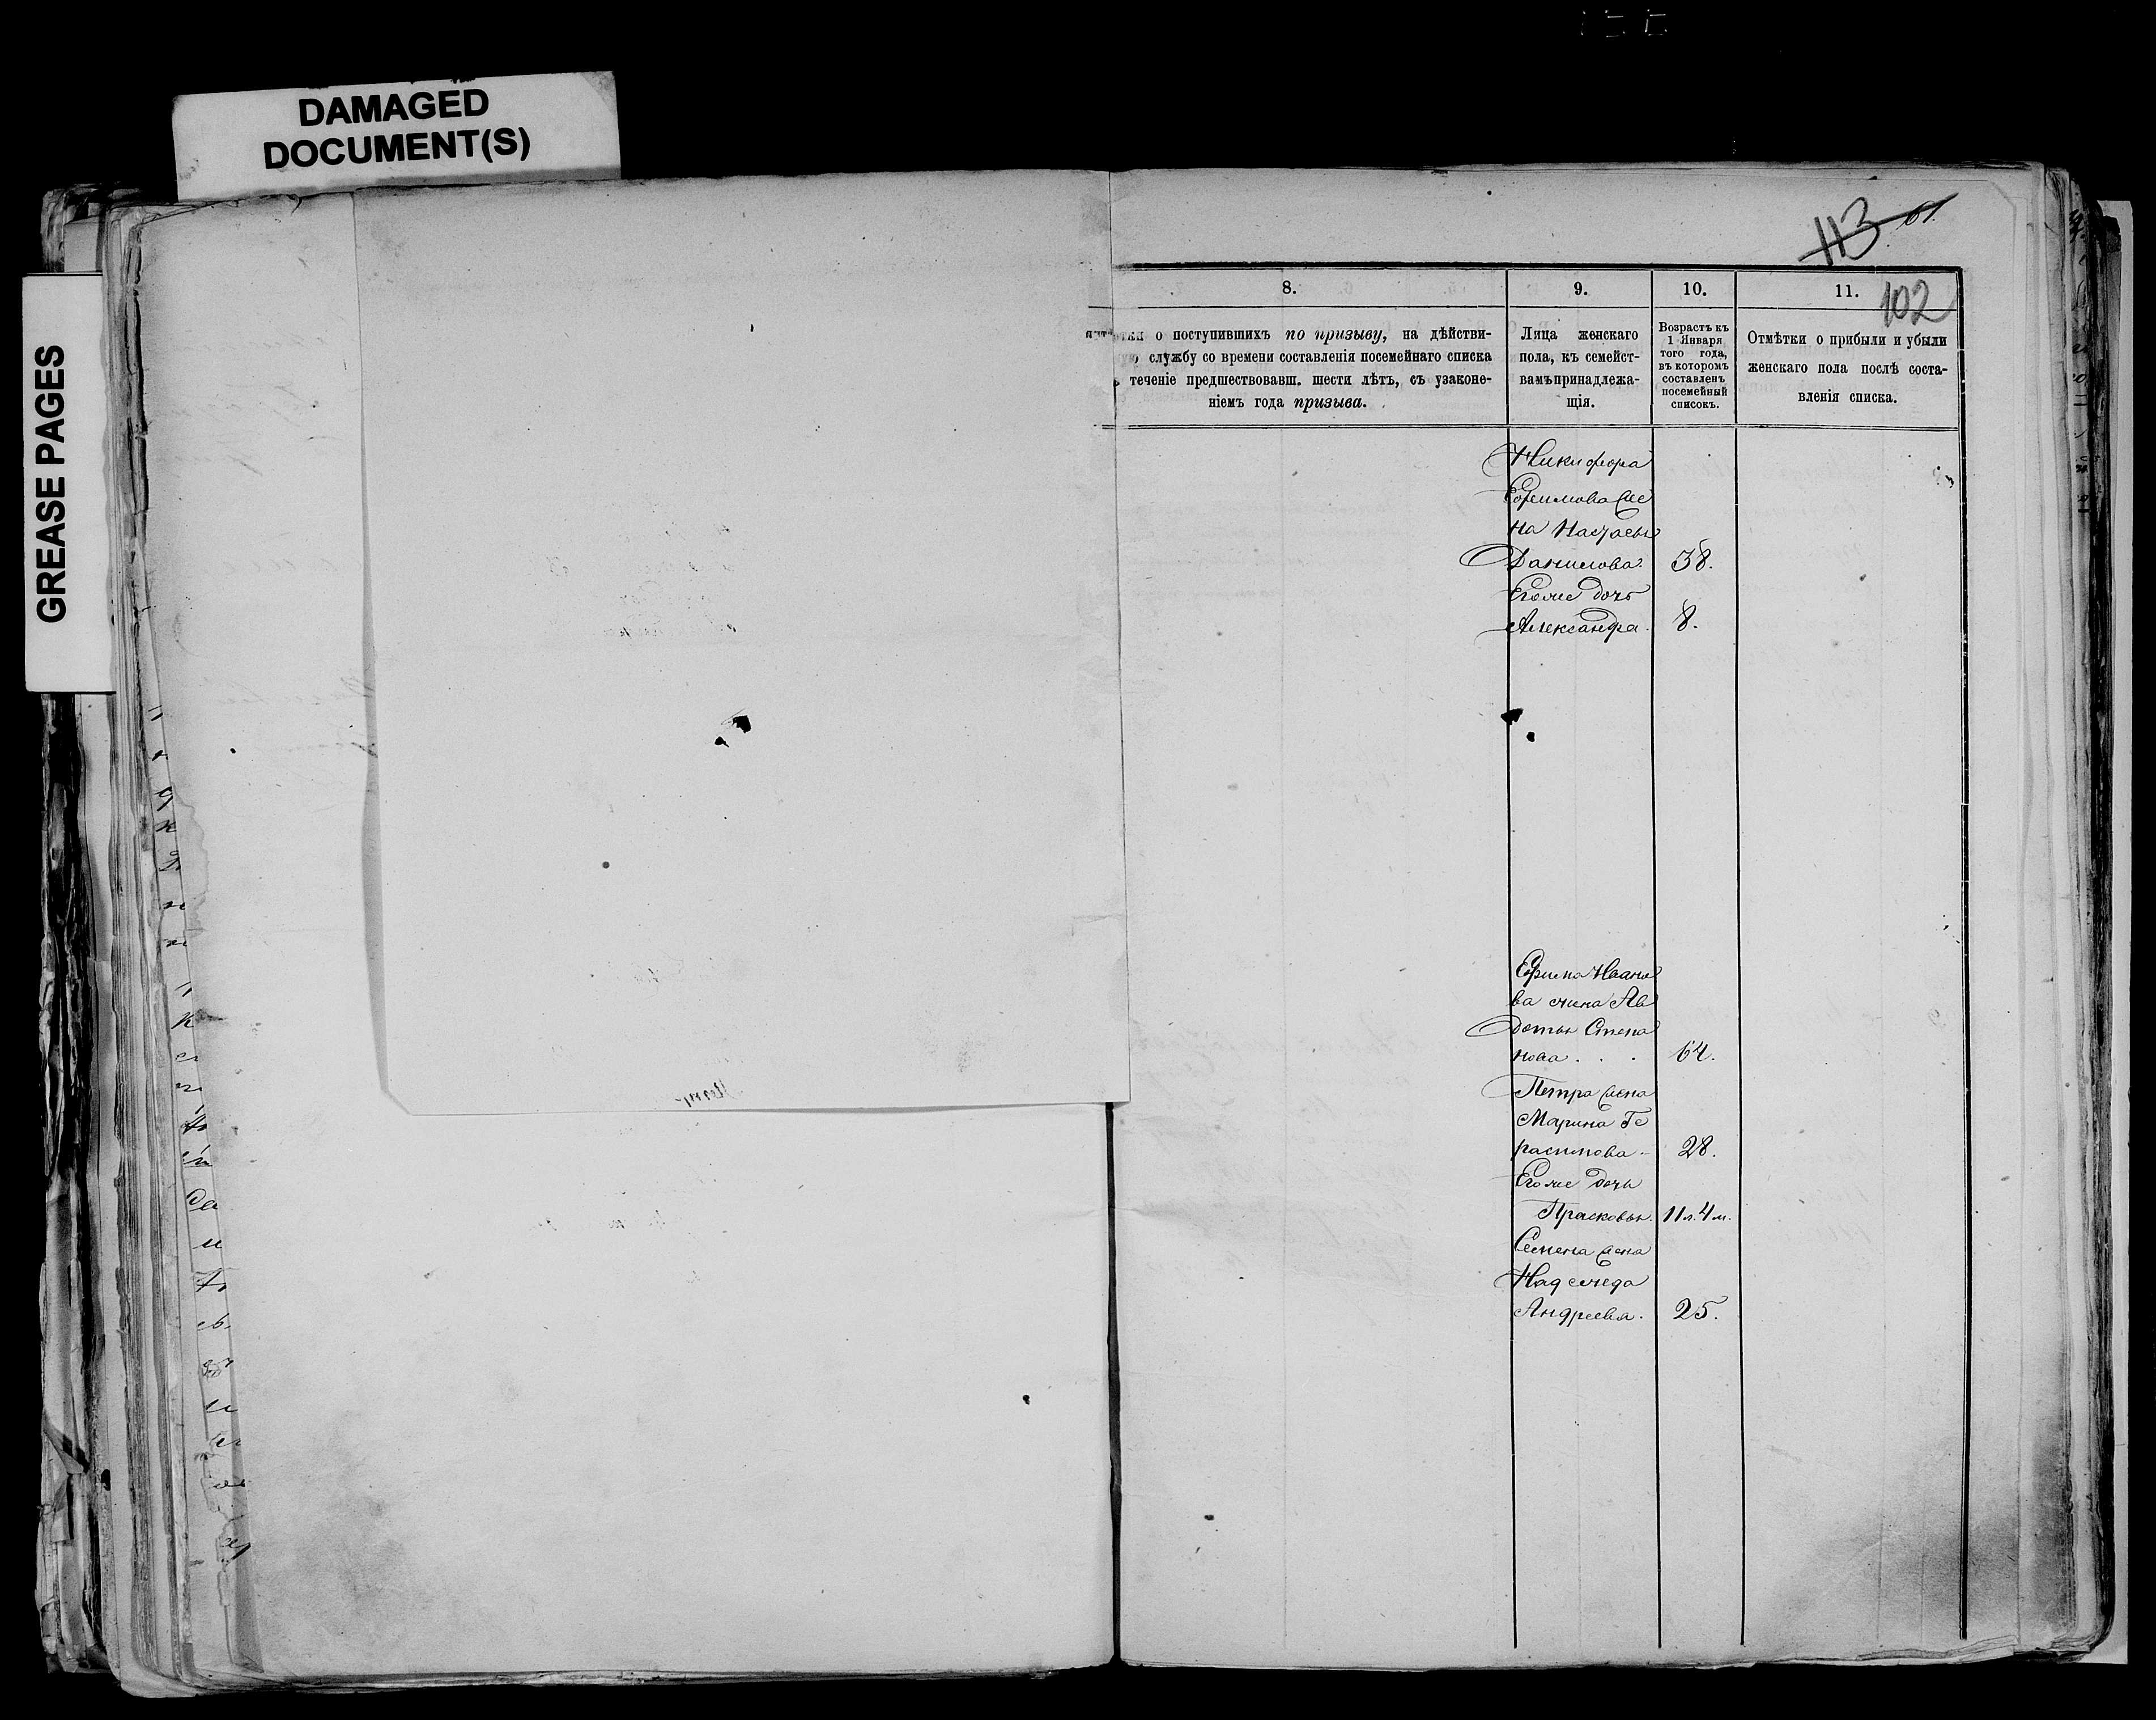 DAMAGED
DOCUMENT(S)
GREASE PAGES
113 61.
102
8.
9.
10.
11.
о поступившихъ по призыву, на дѣйстви-
службу со времени составленія посемейнаго списка
теченіе предшествовавш. шести лѣтъ, съ узаконе-
ніемъ года призыва.
Лица женскаго
пола, къ семейст-
вамъ принадлежа-
щія.
Возрастъ къ
1 Января
того года,
въ которомъ
составленъ
посемейный
списокъ.
Отмѣтки о прибыли и убыли
женскаго пола послѣ соста-
вленія списка.
Никифора
Ефимова же
на Настасья
Данилова. 38.
Егоже дочь
Александра. 8.
Ефима Ивано
ва жена Ав
дотья Степа
нова . . . 64.
Петра жена
Марина Ге
расимова - 28.
Егоже дочь
Прасковья. 11 л. 4 м.
Семена жена
Надежда
Андреева. 25.